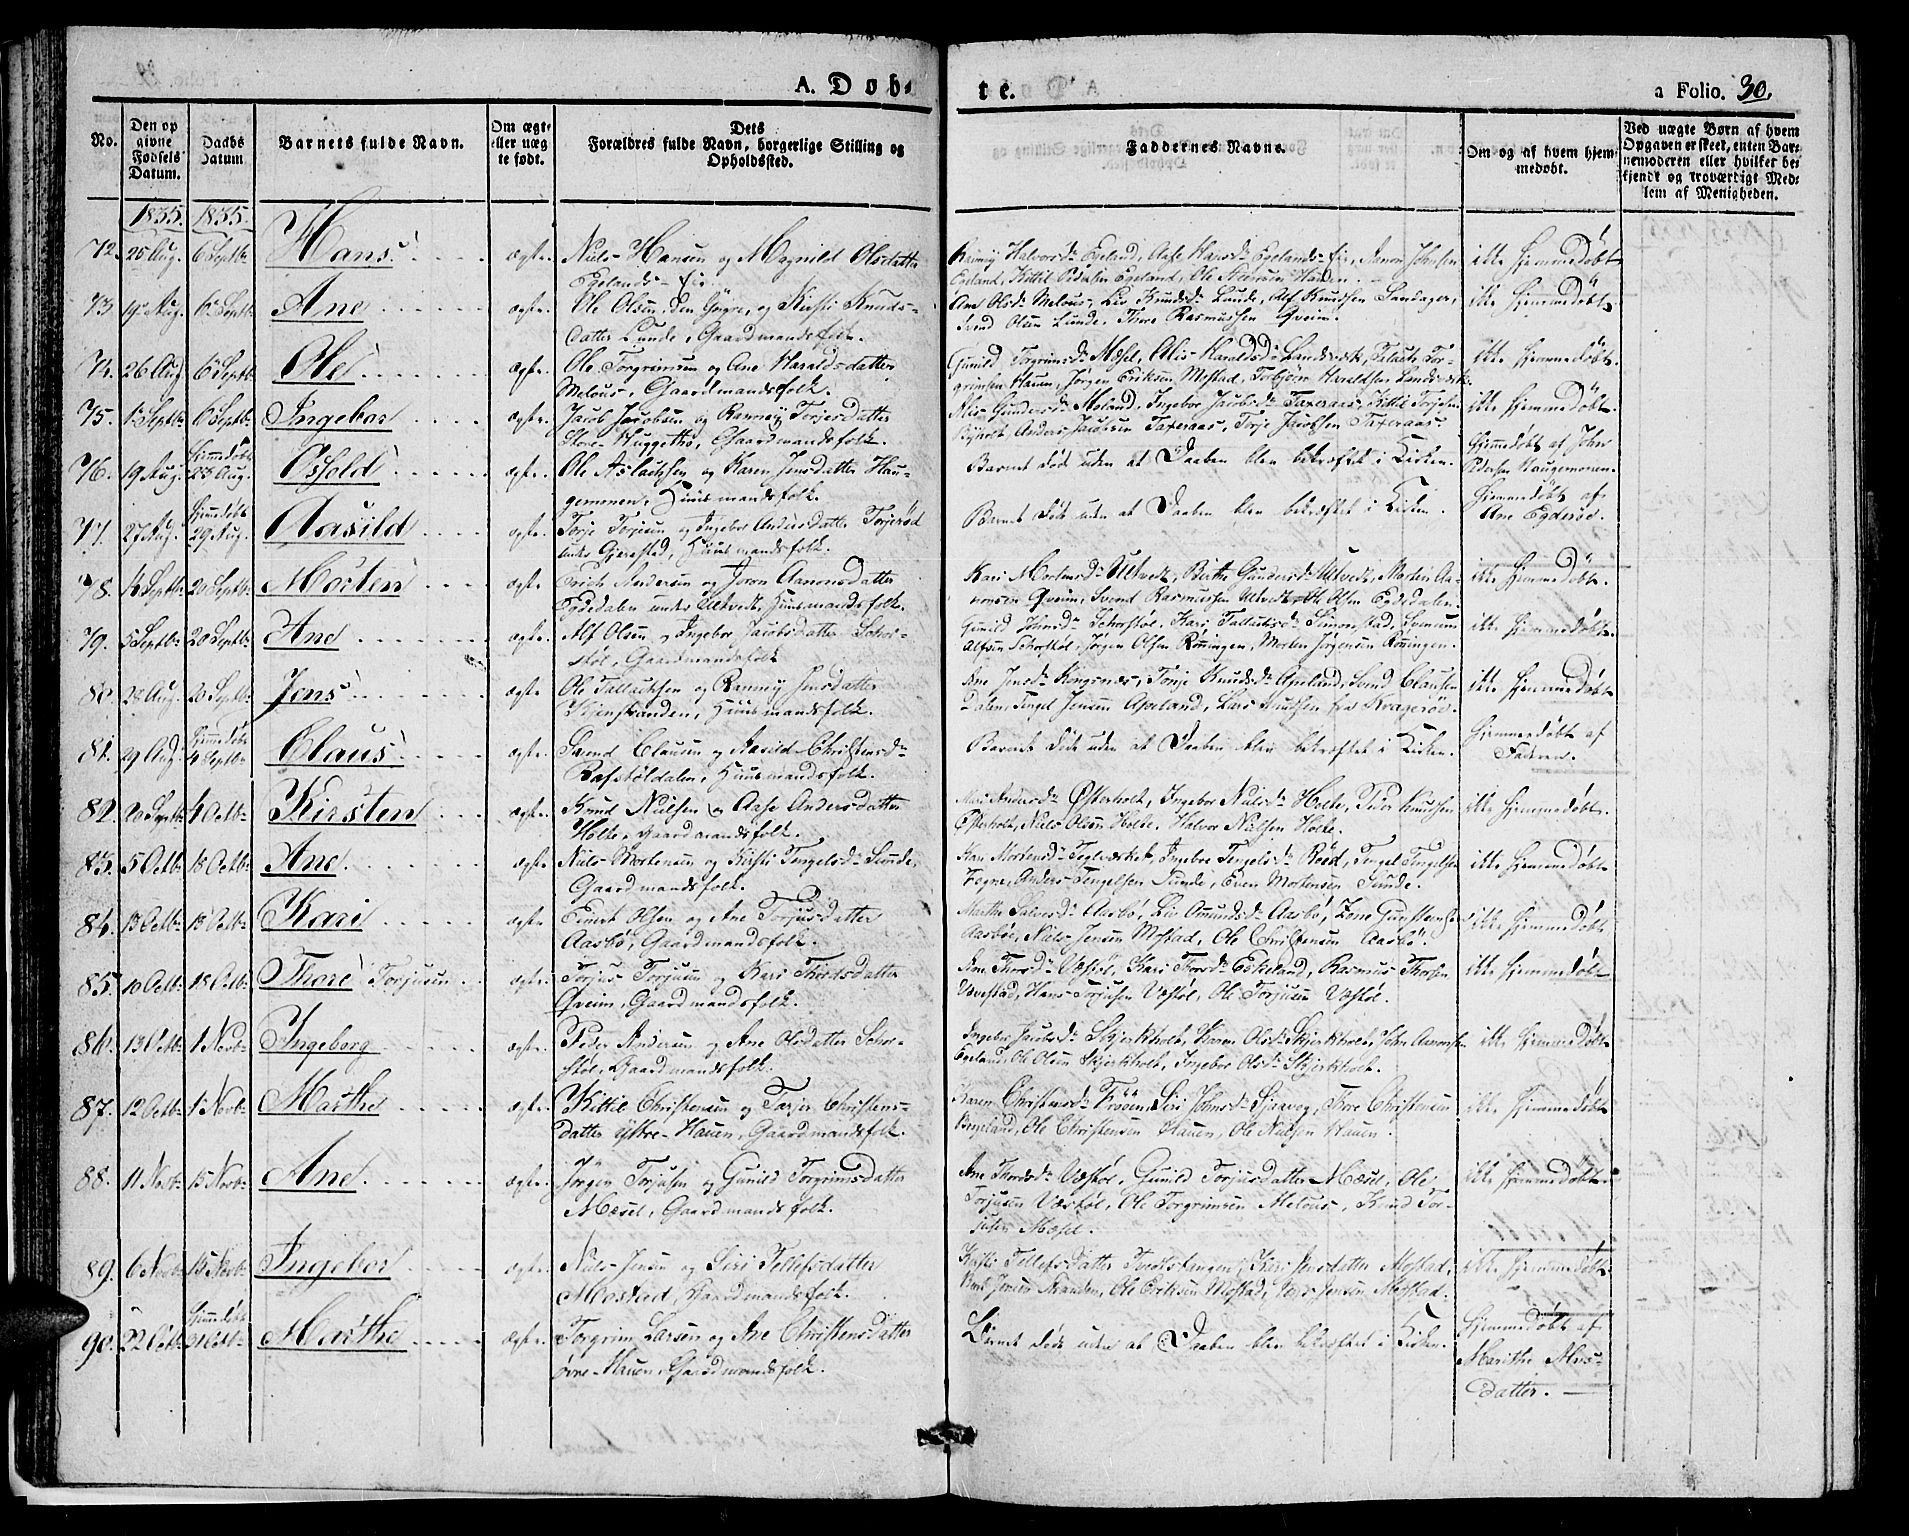 A. Døb-
te.
a Folio. 30.
No.
Den op
givne
Fødsels
Datum.
Daabs
Datum
Barnets fulde Navn.
Om ægt-
eller uæg
te født.
Dets
Forældres fulde Navn, borgerlige Stilling og
Opholdssted.
Faddernes Navne.
Om og af hvem hjem-
medøbt.
Ved uægte Børn af hvem
Opgaven er skeet, enten Bar-
nemoderen eller hvilket be-
kjendt og troværdigt Med-
lem af Menigheden.
1835. 1835.
72. 25 Aug. 6 Septbr Hans ægte. Niels Hansen og Magnild Olsdatter
Egelands-
Halvorsdr Egeland, Aase Hansdr Egelands- Aanon Johnsen
Egeland, Kittil Pedersen Egeland, Ole
ikke Hjemmedøbt
73. 19 Aug. 6 Septbr Ane ægte. Ole Olsen, den Yngre, og Kirsti Knuds-
datter Lunde, Gaardmandsfolk.
Ane Olsdr Melaas, Liv Knudsdr Lunde, Alf Knudsen Sandager,
Svend Olsen Lunde, Thore Rasmussen Qveim.
ikke Hjemmedøbt
74. 26 Aug. 6 Septbr Ole ægte. Ole Torgrimsen og Ane Haraldsdatter
Melaas, Gaardmandsfolk.
Gunild Torgrimsdr Mæsel, Alis Haraldsdr Landsverk, Tor-
grimsen Hauen, Jørgen Eriksen Mostad, Tobjørn Haraldsen Landsverk.
ikke Hjemmedøbt
75. 1 Septbr 6 Septbr Ingebor ægte. Jacob Jacobsen og Ranney Torjesdatter
Store Gaardmandsfolk.
Alis Gundersdr Moland, Ingebor Jacobsdr Taxeraas, Kittil Torjesen
Anders Jacobsen Taxeraas, Torje Jacobsen Taxeraas.
ikke Hjemmedøbt.
76. 19 Aug. Hjemmedøbt 23 Aug. Osfold ægte. Ole Aslaksen og Karen Jensdatter Hau-
gemonen, Huusmandsfolk.
Barnet døde uden at Daaben blev bekræftet i Kirken.
Hjemmedøbt af John
Pedersen Haugemonen.
77. 27 Aug. Hjemmedøbt 29 Aug. Aasild ægte. Torje Torjesen og Ingebor Andersdatter Torjerød
under Gjerestad, Huusmandsfolk.
Barnet døde uden at Daaben blev bekræftet i Kirken.
Hjemmedøbt af
Ane Egderød.
78. Septbr 20 Septbr Morten ægte. Erich Andersen og Joren Aanonsdatter
Egdedalen under Ulltvedt, Huusmandsfolk.
Kari Mortensdr Ulltvedt, Berthe Gundersdr Ulltvedt, Morten Aa-
nonsen Qveim, Svend Rasmussen Ulltvedt Ole Olsen Egdedalen.
ikke Hjemmedøbt.
79. 5 Septbr 20 Septbr Ane ægte. Alf Olsen og Ingebor Jacobsdatter Schor-
støl, Gaardmandsfolk
Gunild Johnsdr Schorstøl, Kari Tallaksdr Simonstad,
Alfsen Schorstøl, Jørgen Olsen Rønningen, Morten Jørgensen Rønningen.
ikke Hjemmedøbt.
80. Aug. 20 Septbr Jens ægte. Ole Tallaksen og Ranney Jensdatter
Huusmandsfolk.
Ane Jensdr Kongsnæs, Torje Knudsdr Apeland, Svend Clausen
Dalen, Tengel Jensen Apeland, Lars Knudsen fra Kragerøe.
ikke Hjemmedøbt
81. 29 Aug. Hjemmedøbt 4 Septbr Claus ægte. Svend Clausen og Aasild Christensdr
Rafstøldalen, Huusmandsfolk.
Barnet døde uden at Daaben blev bekræftet i Kirken.
Hjemmedøbt af
Faderen.
82. 20 Septbr 4 Octbr Kirsten ægte. Knud Nielsen og Aase Andersdatter
Holte, Gaardmandsfolk.
Andersdr Østerholt, Ingebor Nielsdr Holte, Peder Knudsen
Østerholt, Niels Olsen Holte, Halvor Nielsen Holte.
ikke Hjemmedøbt.
83. 5 Octbr 18 Octbr Ane ægte. Niels Mortensen og Kirsti Tengelsdr Sunde,
Gaardmandsfolk.
Mortensdr Teglverket, Ingebor Tengelsdr Røed, Tengel Tengelsen
Fogne, Anders Tengelsen Sunde, Even Mortensen Sunde.
ikke Hjemmedøbt
84. 13 Octbr 18 Octbr Kari ægte. Einert Olsen og Ane Torjusdatter
Aasbø, Gaardmandsfolk.
Marthe Salvesdr Aasbø, Liv Amundsdr Aasbø,
Aasbøe, Niels Jensen Mostad, Ole Christensen Aasbø.
ikke Hjemmedøbt
85. 10 Octbr 18 Octbr Thore Torjusen ægte. Torjus Torjusen og Kari Thordsdatter
Qveim, Gaardmandsfolk.
Ane Thorsdr Væstøl, Kari Thorsdr Eskeland, Rasmus Thorsen
Vævestad, Hans Torjusen Væstøl, Ole Torjusen Væstøl.
ikke Hjemmedøbt
86. 13 Octbr 1 Novbr Ingeborg ægte. Peder Andersen og Ane Olsdatter Schor-
støl, Gaardmandsfolk.
Ingebor Jacobsdr Skjerkholt, Karen Olsdr Skjerkholt, John Aanonsen
Egeland, Ole Olsen Skjerkholt, Ingebor Olsdr Skjerkholt.
ikke Hjemmedøbt
87. 12 Octbr 1 Novbr Marthe ægte. Kittil Christensen og Torjer Christens-
datter ytre Hauen, Gaardmandsfolk.
Karen Christensdr Frøen, Siri Johnsdr Thore Christensen
Bergeland, Ole Christensen Hauen, Ole Nielsen Hauen.
ikke Hjemmedøbt
88. 11 Novbr 15 Novbr Ane ægte. Jørgen Torjusen og Gunild Torgrimsdatter
Mæsel, Gaardmandsfolk.
Ane Thordsdr Væstøl, Gunild Torjusdatter Mæsel, Ole
Torjusen Væstøl, Ole Torgrimsen Melaas, Knud Tor-
jusen Mæsel.
ikke Hjemmedøbt
89. 6 Novbr 15 Novbr Ingebor ægte. Niels Jensen og Siri Tellefsdatter
Mostad, Gaardmandsfolk.
Kirsti Tellefsdatter Kari Jensdatter Mostad,
Jensen Stranden, Ole Eriksen Mostad, Jensen Mostad.
ikke Hjemmedøbt
90. 22 Octbr Hjemmedøbt Octbr Marthe ægte. Torgrim Larsen og Ane Christensdatter
øvre Hauen, Gaardmandsfolk.
Barnet døde uden at Daaben blev bekræftet i Kirken.
Hjemmedøbt af
Marithe
datter.